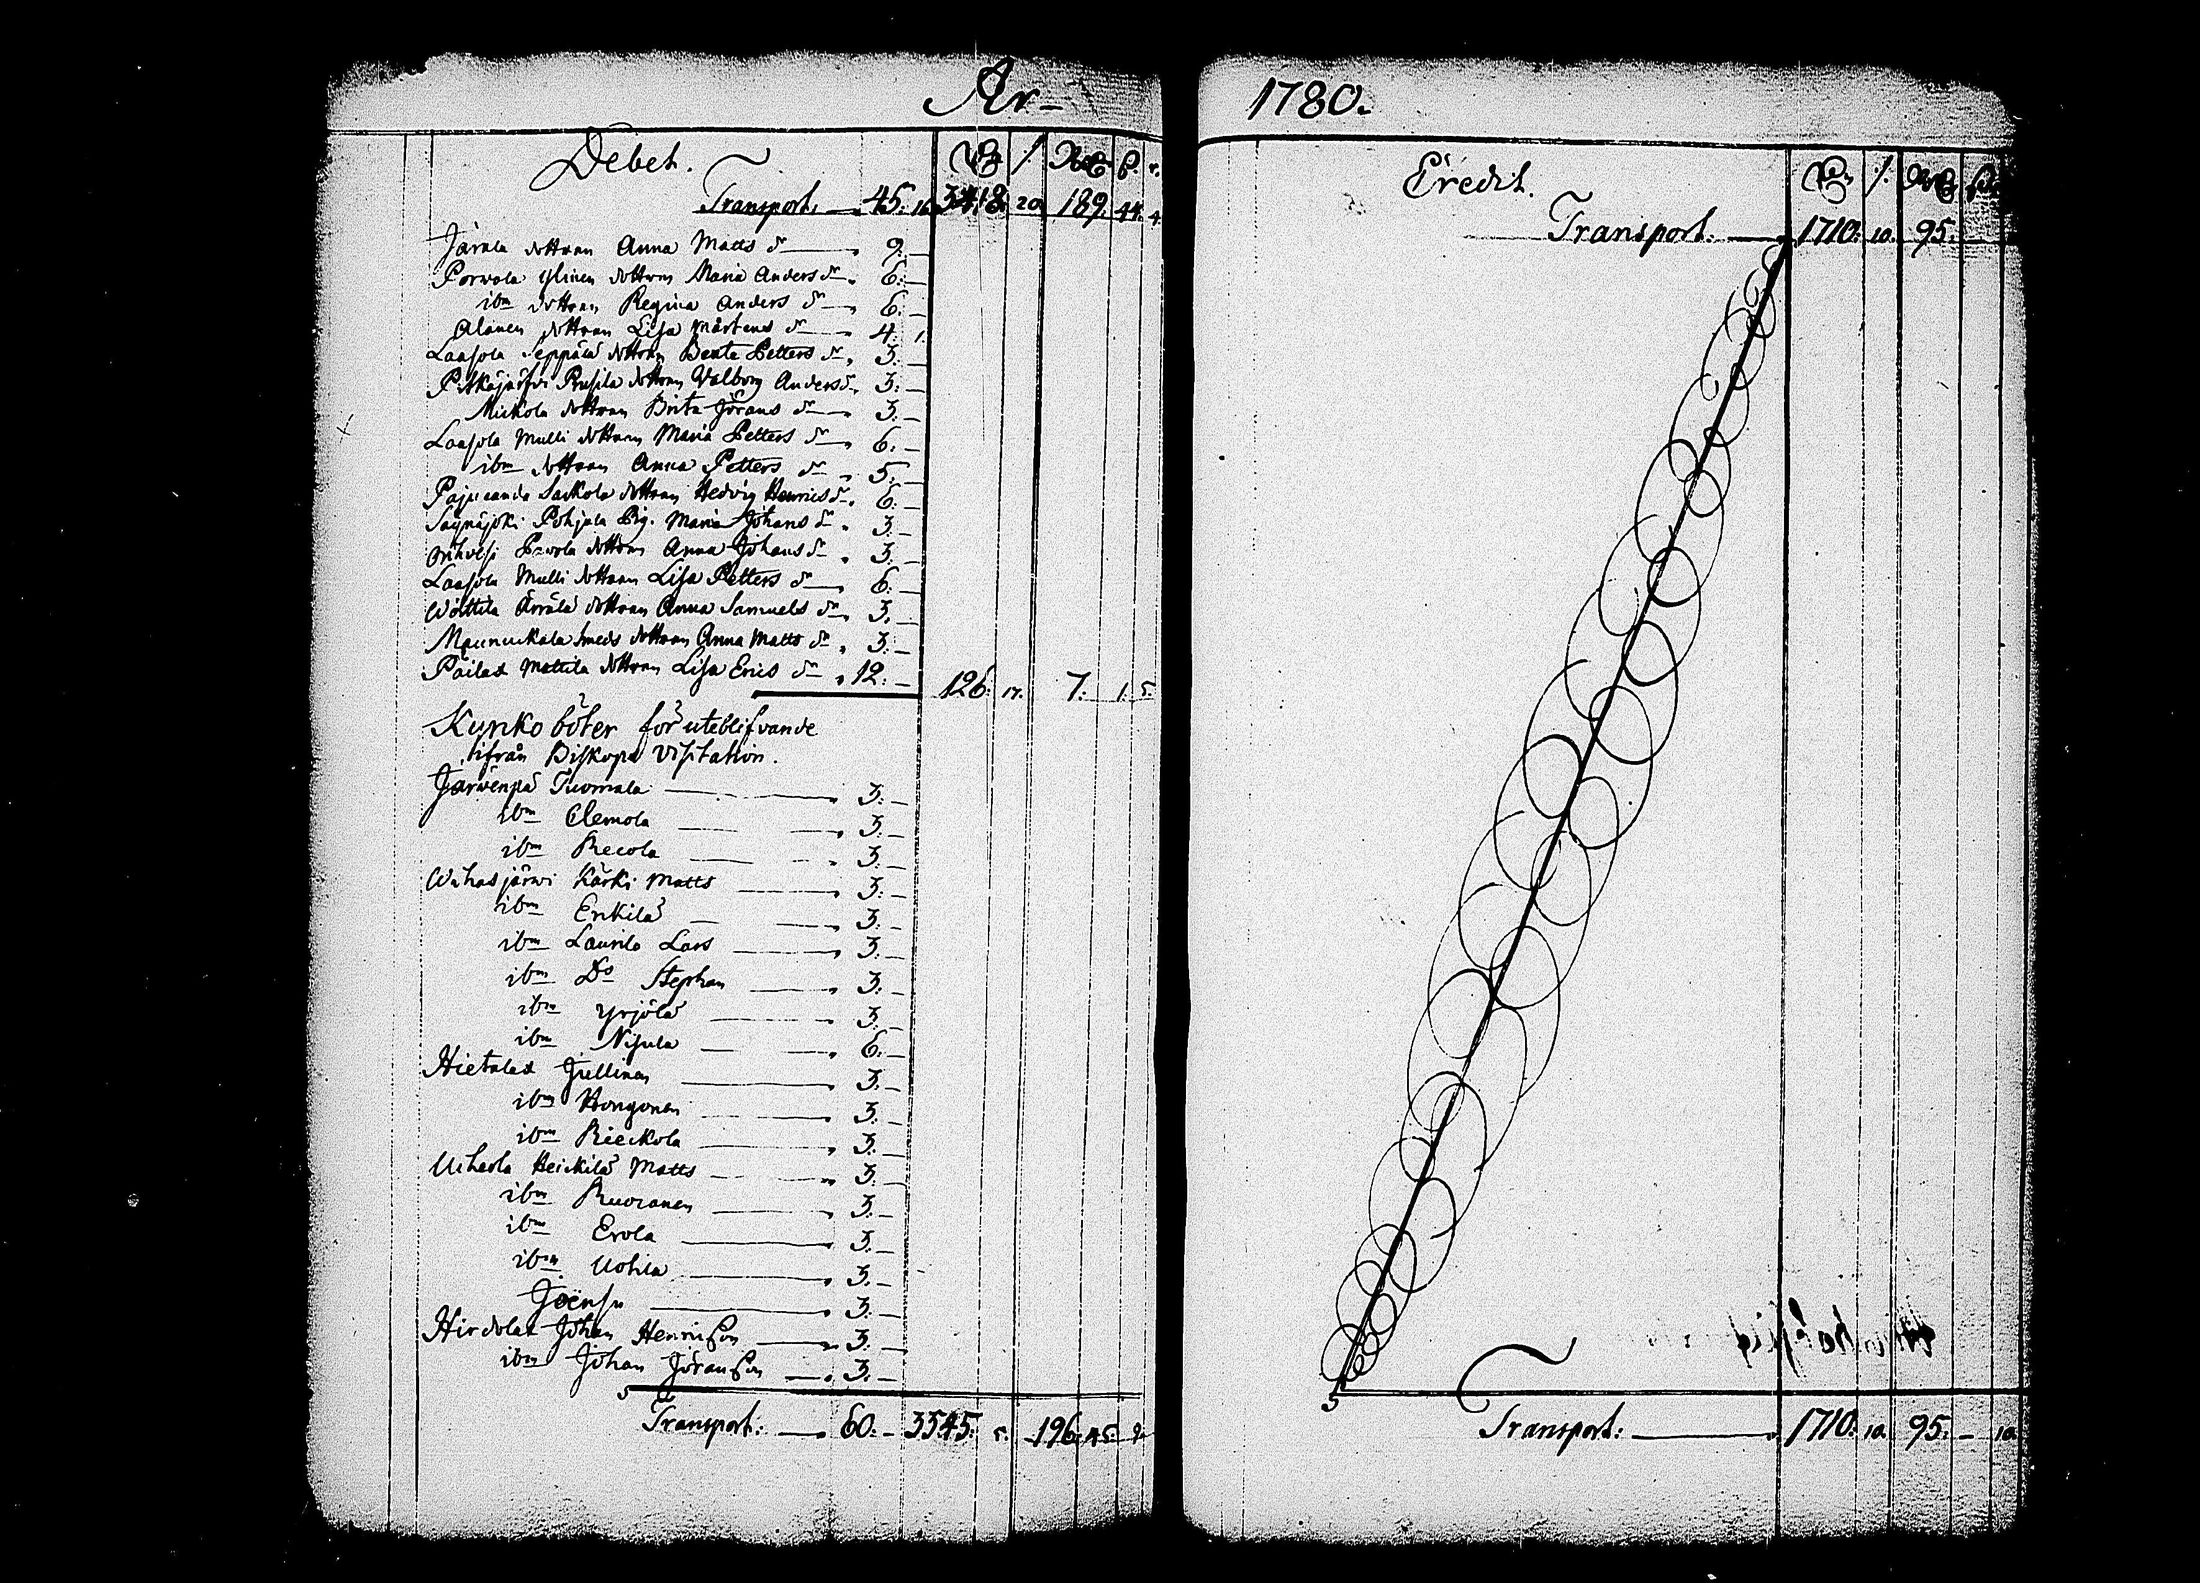 År 1780.
Debet.
Transport. 45. 16. 3418. 20. 189. 44. 4.
Järala dottren Anna Matts dr 9. —
Porvola ylinen dottren Maria Anders dr 6. —
ibm dottren Regina Anders dr 6. —
Alanen dottren Lisa Mårtens dr 4. 1.
Laasola Seppälä dottren Beata Petters dr 3. —
Pitkäjärfvi Prusila dottren Valborg Anders dr 3. —
Mickola dottren Brita Jörans dr 3. —
Laasola Mulli dottren Maria Petters dr 6. —
ibm dottren Anna Petters dr 5. —
Sackola dottren Hedvig Henrics dr 6. —
Säynäjoki Pohjala Pig. Maria Johans dr 3. —
Pavola dottren Anna Johans dr 3. —
Laasola Mulli dottren Lisa Petters dr 6. —
Wättilä dottren Anna Samuels dr 3. —
Maunuckala Smeds dottren Anna Matts dr 3. —
Päilax Mattila dottren Lisa Erics dr 12. — 126. 17. 7. 1. 5.
Kyrko böter för uteblifvande
ifrån Biskops Visitation.
Järvenpä Tuomala 3. —
ibm Clemola 3. —
ibm Recola 3. —
Wihasjärvi Kärki Matts 3. —
ibm Erikilä 3. —
ibm Laurila Lars 3. —
ibm Do Stephan 3. —
ibm Yrjölä 3. —
ibm Nisula 6. —
Hietalax Jullinen 3. —
ibm Hongonen 3. —
ibm Rieckola 3. —
Uiherla Heickilä Matts 3. —
ibm Ruoranen 3. —
ibm Erola 3. —
ibm Uotila 3. —
Joensu 3. —
Hirdolax Johan Henricsson 3. —
ibm Johan Göransson 3. —
Transport. 60. — 3545. 5. 196. 45. 9.
Credit.
Transport. 1710. 10. 95. —
Transport. 1710. 10. 95. — 10.